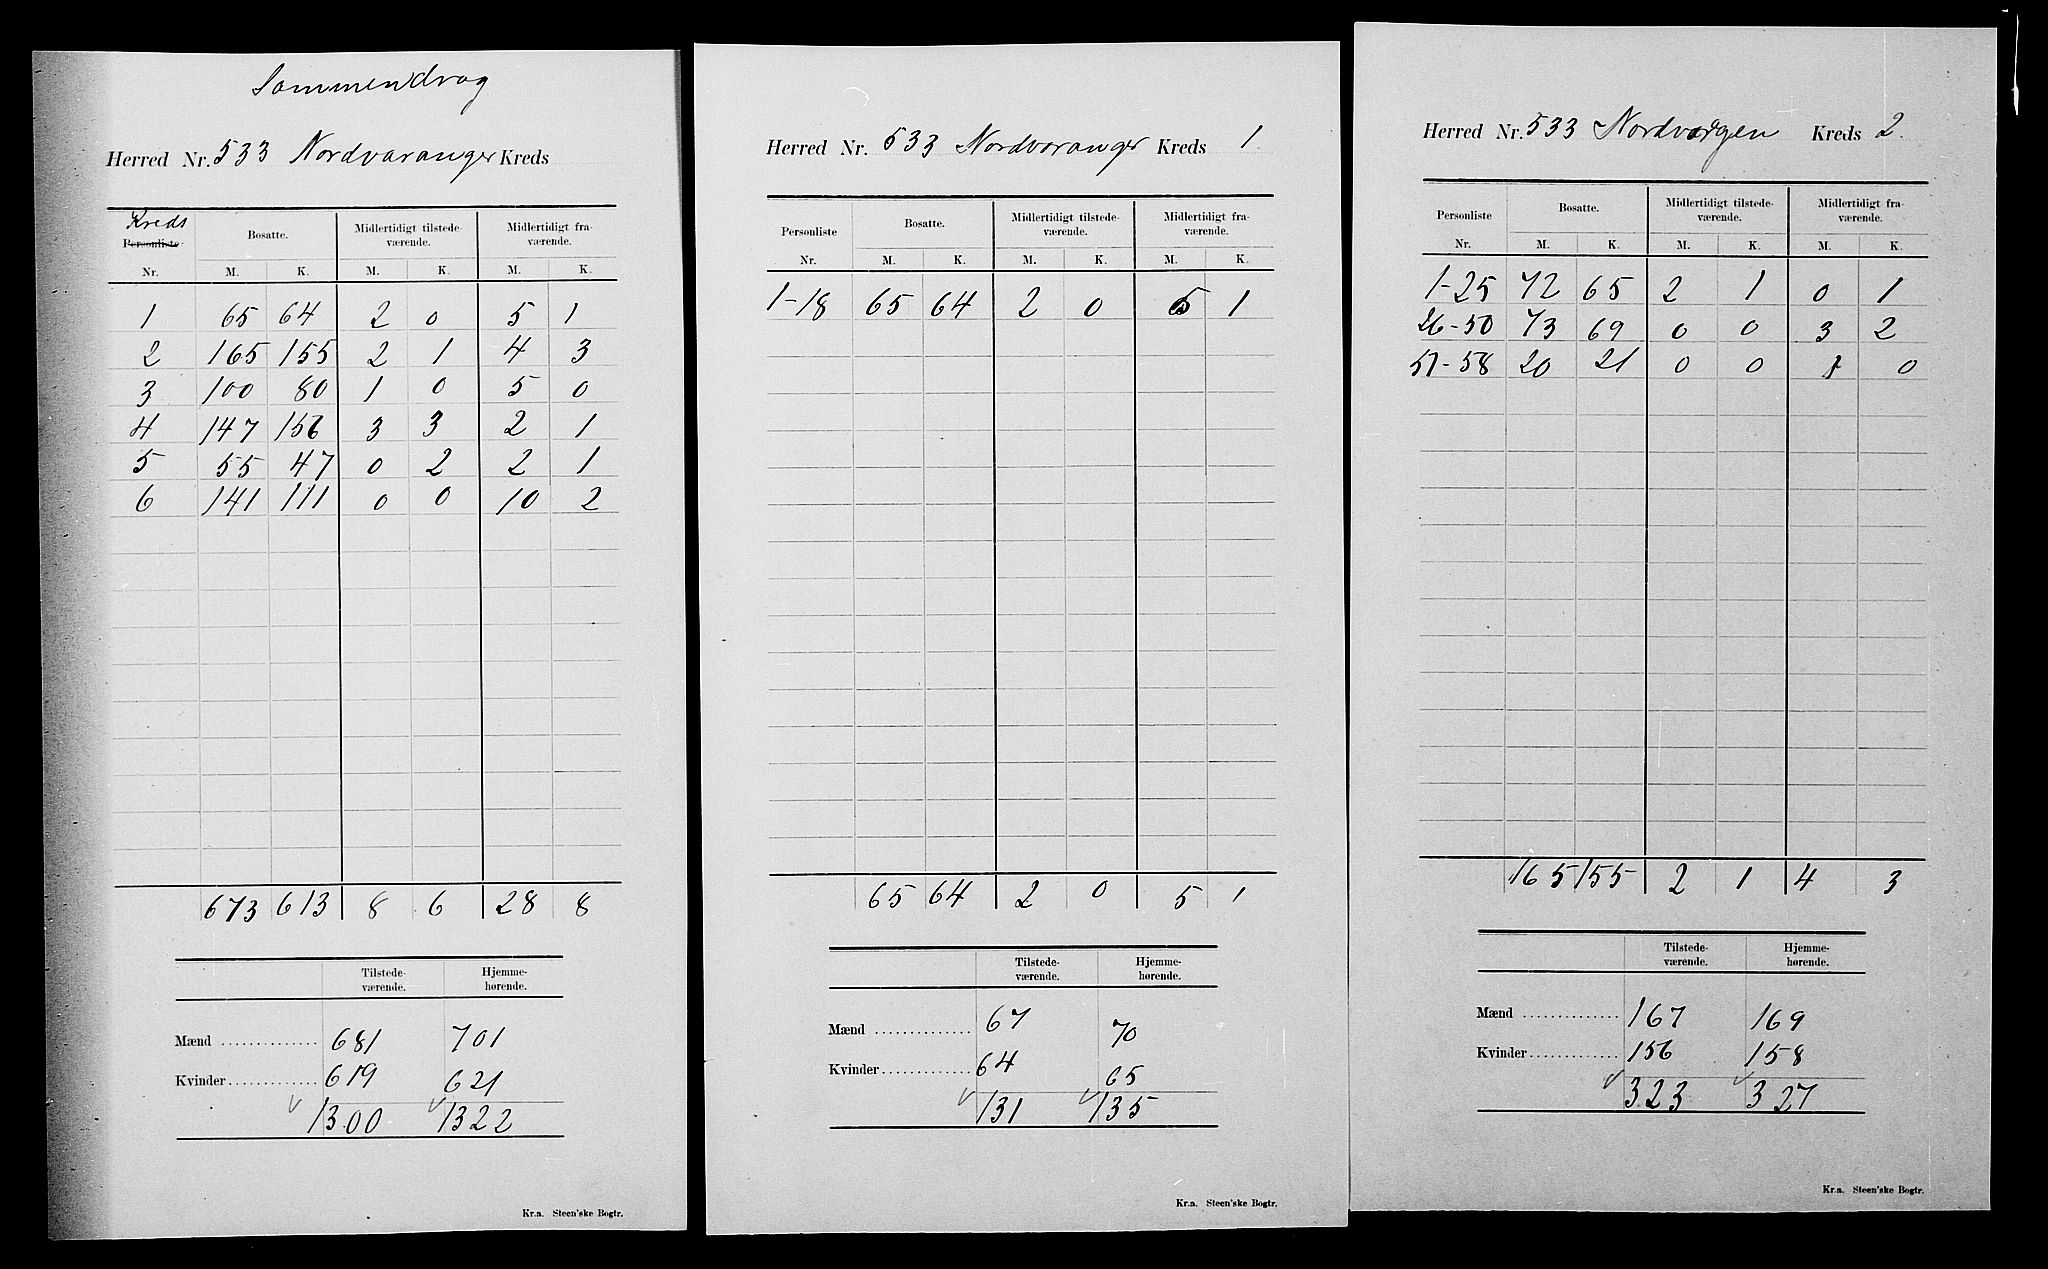 Sammendrag
Herred Nr. 533 Nordvaranger Kreds
Kreds
Personliste Bosatte. Midlertidigt tilstede- Midlertidigt fra-
værende. værende.
Nr. M. K. M. K. M. K.
1 65 64 2 0 5 1
2 165 155 2 1 4 3
3 100 80 1 0 5 0
4 147 156 3 3 2 1
5 55 47 0 2 2 1
6 141 111 0 0 10 2
673 613 8 6 28 8
Tilstede- Hjemme-
værende. hørende.
Mænd 681 701
Kvinder 619 621
1300 1322
Kr.a. Steen'ske Bogtr.
Herred Nr. 533 Nordvaranger Kreds 1.
Personliste Bosatte. Midlertidigt tilstede- Midlertidigt fra-
værende. værende.
Nr. M. K. M. K. M. K.
1-18 65 64 2 0 5 1
65 64 2 0 5 1
Tilstede- Hjemme-
værende. hørende.
Mænd 67 70
Kvinder 64 65
131 135
Kr.a. Steen'ske Bogtr.
Herred Nr. 533 Kreds 2.
Personliste Bosatte. Midlertidigt tilstede- Midlertidigt fra-
værende. værende.
Nr. M. K. M. K. M. K.
1-25 72 65 2 1 0 1
26-50 73 69 0 0 3 2
51-58 20 21 0 0 1 0
165 155 2 1 4 3
Tilstede- Hjemme-
værende. hørende.
Mænd 167 169
Kvinder 156 158
323 327
Kr.a. Steen'ske Bogtr.